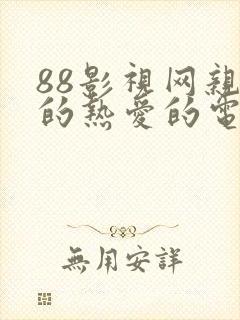 88影視网親
的热爱的電
無用安詳